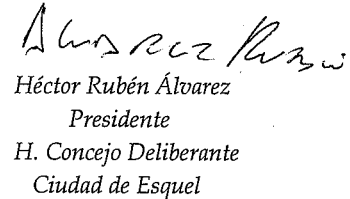 Alvarez Rubén
Héctor Rubén Álvarez
Presidente
H. Concejo Deliberante
Ciudad de Esquel